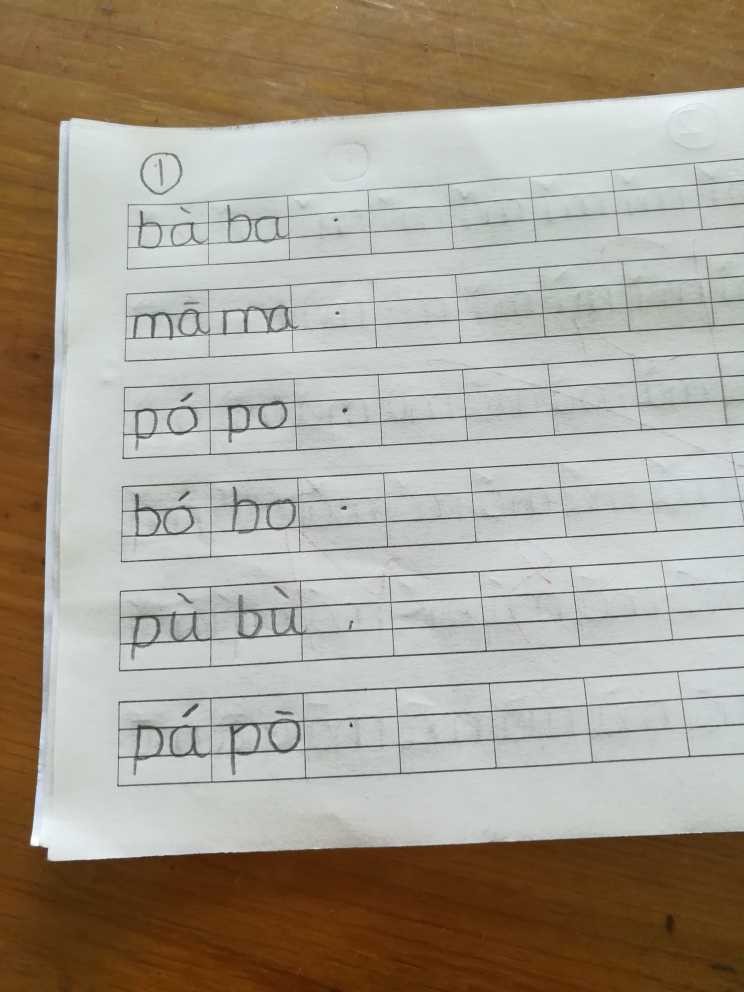 ①
bà ba
mā ma
pó po
bó bo
pù bù
pá pō